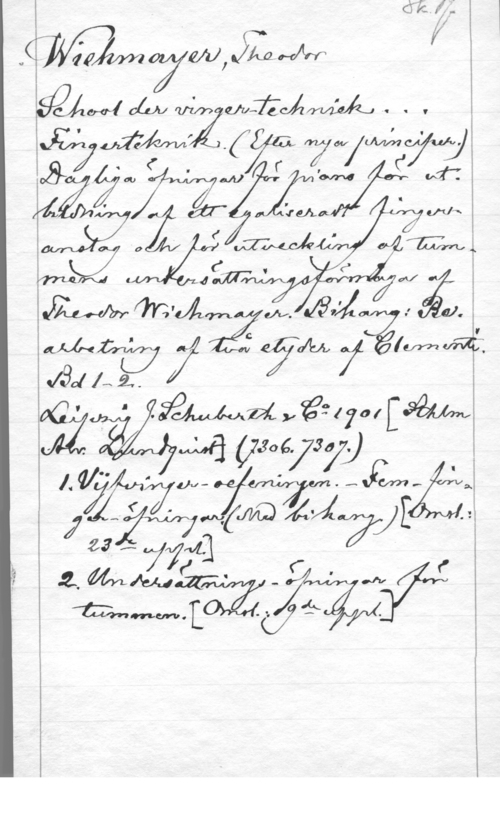 Sk. 17.
Wiehmayer, Theodor
School der vingertechniek . . .
Fingerteknik. (Efter nya principer.)
Dagliga öfningar för piano för ut-
bildning af ett egaliseradt finger-
anslag och för utveckling af tum-
mens undersättningsförmåga af
Theodor Wiehmayer. Bihang: Be-
arbetning af två etyder af Clementi.
Bd 1-2.
Leipzig J. Schuberth & Co 1901 [Sthlm
Abr. Lundquist] (7306. 7307.)
1. Vijfvinger-oefeningen. - Fem-fin-
ger-öfningar. (Med bihang.) [Omsl.:
23de uppl.]
2. Undersättnings-öfningar för
tummen. [Omsl.: 9de uppl.]